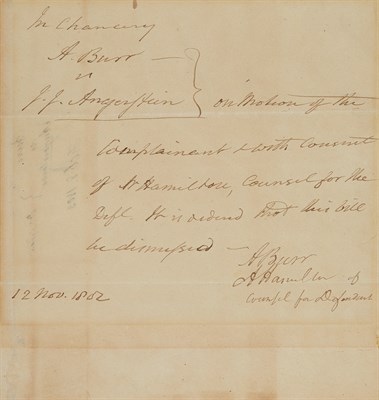 In Chancery
A. Burr —
vs
J. J. Angerstein
on Motion of the
Complainant & with Consent
of Mr Hamilton, Counsel for the
Deft. It is ordered that this bill
be dismissed —
A Burr
A Hamilton of
Counsel for Defendant
12 Nov. 1802